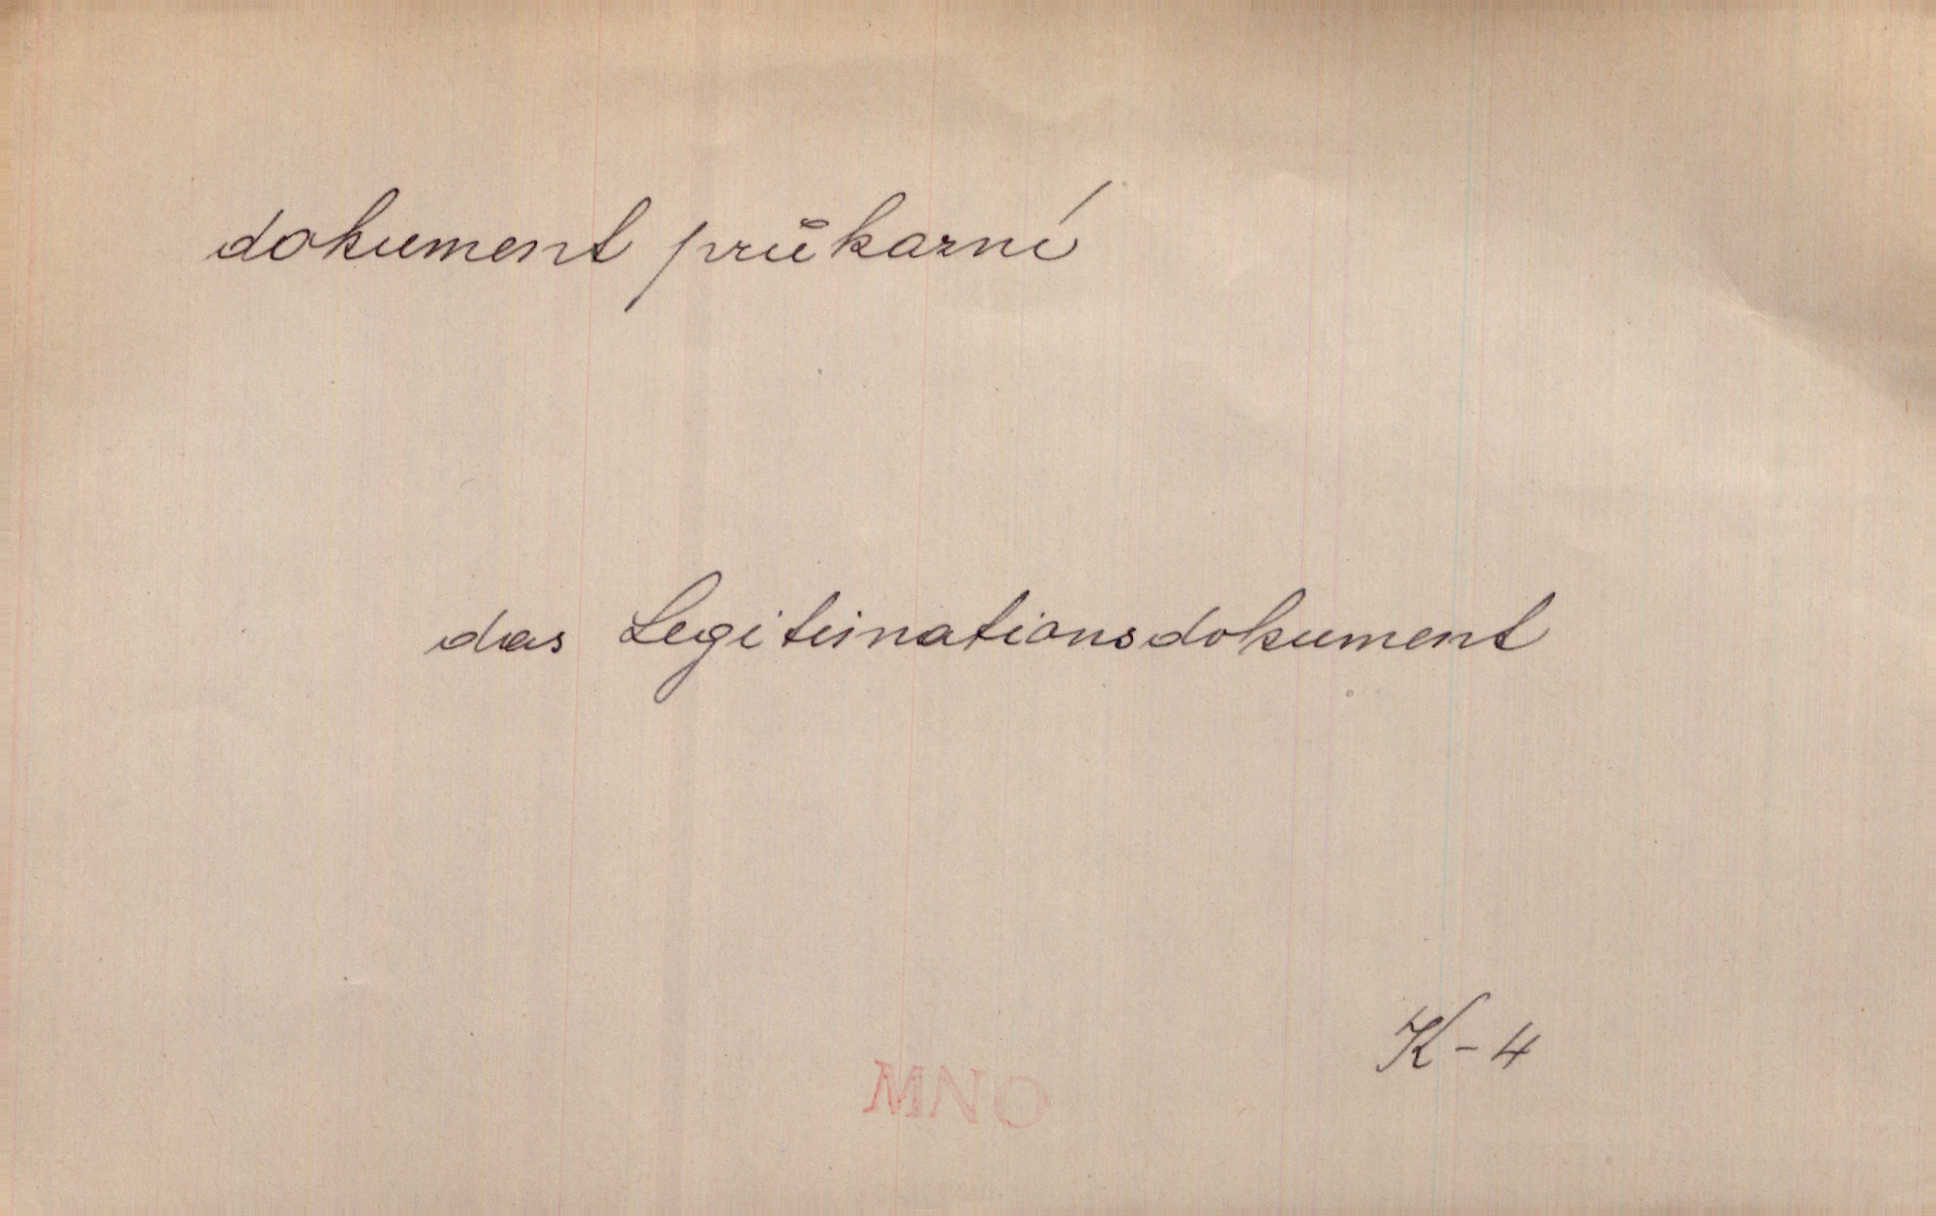 dokument průkazní
das Legitimationsdokument
K-4
MNO